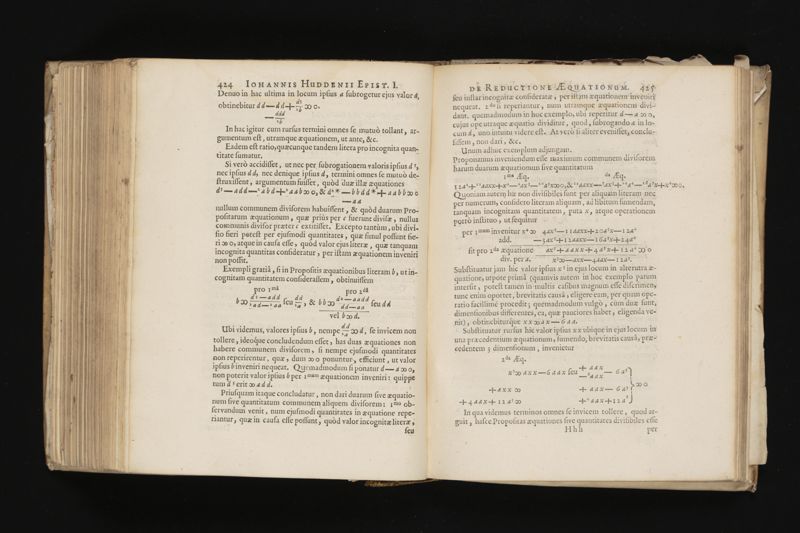 424 IOHANNIS HUDDENII EPIST. I.
Denuo in hac ultima in locum ipsius a subrogetur ejus valor d,
obtinebitur dd—dd+
In hac igitur cum rursus termini omnes se mutuò tollant, ar-
gumentum est, utramque æquationem, ut ante, &c.
Eadem est ratio, quæcunque tandem litera pro incognita quan-
titate sumatur.
Si verò accidisset, ut nec per subrogationem valoris ipsius d³,
nec ipsius dd, nec denique ipsius d, termini omnes se mutuò de-
struxissent, argumentum fuisset, quòd duæ illæ æquationes
nullum communem divisorem habuissent, & quòd duarum Pro-
positarum æquationum, quæ priùs per c fuerunt divisæ, nullus
communis divisor præter c extitisset. Excepto tantùm, ubi divi-
sio fieri potest per ejusmodi quantitates, quæ simul possunt fie-
ri ∞ 0, atque in causa esse, quòd valor ejus literæ, quæ tanquam
incognita quantitas consideratur, per istam æquationem inveniri
non possit.
Exempli gratiâ, si in Propositis æquationibus literam b, ut in-
cognitam quantitatem considerassem, obtinuissem
pro 1mâ pro 2dâ
vel b ∞ d.
Ubi videmus, valores ipsius b, nempe dd/a ∞ d, se invicem non
tollere, ideoque concludendum esset, has duas æquationes non
habere communem divisorem, si nempe ejusmodi quantitates
non reperirentur, quæ, dum ∞ 0 ponuntur, efficiunt, ut valor
ipsius b inveniri nequeat. Quemadmodum si ponatur d—a ∞ 0,
non poterit valor ipsius b per 1mam æquationem inveniri: quippe
tum d³ erit ∞ add.
Priusquam itaque concludatur, non dari duarum sive æquatio-
num sive quantitatum communem aliquem divisorem: 1mo ob-
servandum venit, num ejusmodi quantitates in æquatione repe-
riantur, quæ in causa esse possunt, quòd valor incognitæ literæ,
seu
DE REDUCTIONE ÆQUATIONUM. 425
seu instar incognitæ consideratæ, per istam æquationem inveniri
nequeat. 2do si reperiantur, num utramque æquationem divi-
dant. quemadmodum in hoc exemplo, ubi reperitur d—a ∞ 0,
cujus ope utraque æquatio dividitur, quod, subrogando a in lo-
cum d, uno intuitu videre est. At verò si aliter evenisset, conclu-
sissem, non dari, &c.
Unum adhuc exemplum adjungam.
Proponamus inveniendum esse maximum communem divisorem
harum duarum æquationum sive quantitatum
1ma Æq. da Æq.
Quoniam autem hæ non divisibiles sunt per aliquam literam nec
per numerum, considero literam aliquam, ad libitum sumendam,
tanquam incognitam quantitatem, puta x, atque operationem
porrò instituo, ut sequitur
per 1mam invenitur x⁴ ∞ 4ax³—11aaxx+20a³x—12a⁴
add. —3ax³+12aaxx—16a³x+24a⁴
sit pro 2da æquatione ax³+aaxx+4a³x+12a⁴ ∞ 0
div. per a. x³ ∞ —axx—4aax—12a³.
Substituatur jam hic valor ipsius x³ in ejus locum in alterutra æ-
quatione, utpote primâ (quamvis autem in hoc exemplo parum
intersit, potest tamen in multis casibus magnum esse discrimen,
tunc enim oportet, brevitatis causâ, eligere eam, per quam ope-
ratio facillimè procedit; quemadmodum vulgò, cùm duæ sunt,
dimensionibus differentes, ea, quæ pauciores habet, eligenda ve-
nit), obtinebiturque xx ∞ ax—6aa.
Substituatur rursus hic valor ipsius xx ubique in ejus locum in
una præcedentium æquationum, sumendo, brevitatis causâ, præ-
cedentem 3 dimensionum, invenietur
2da Æq.
x³ ∞ axx—6aax seu +aax —6a³
—6aax
+axx ∞ +aax—6a³ ∞ 0
+4aax+12a³ ∞ +4aax+12a³
In qua videmus terminos omnes se invicem tollere, quod ar-
guit, hasce Propositas æquationes sive quantitates divisibiles esse
Hhh per